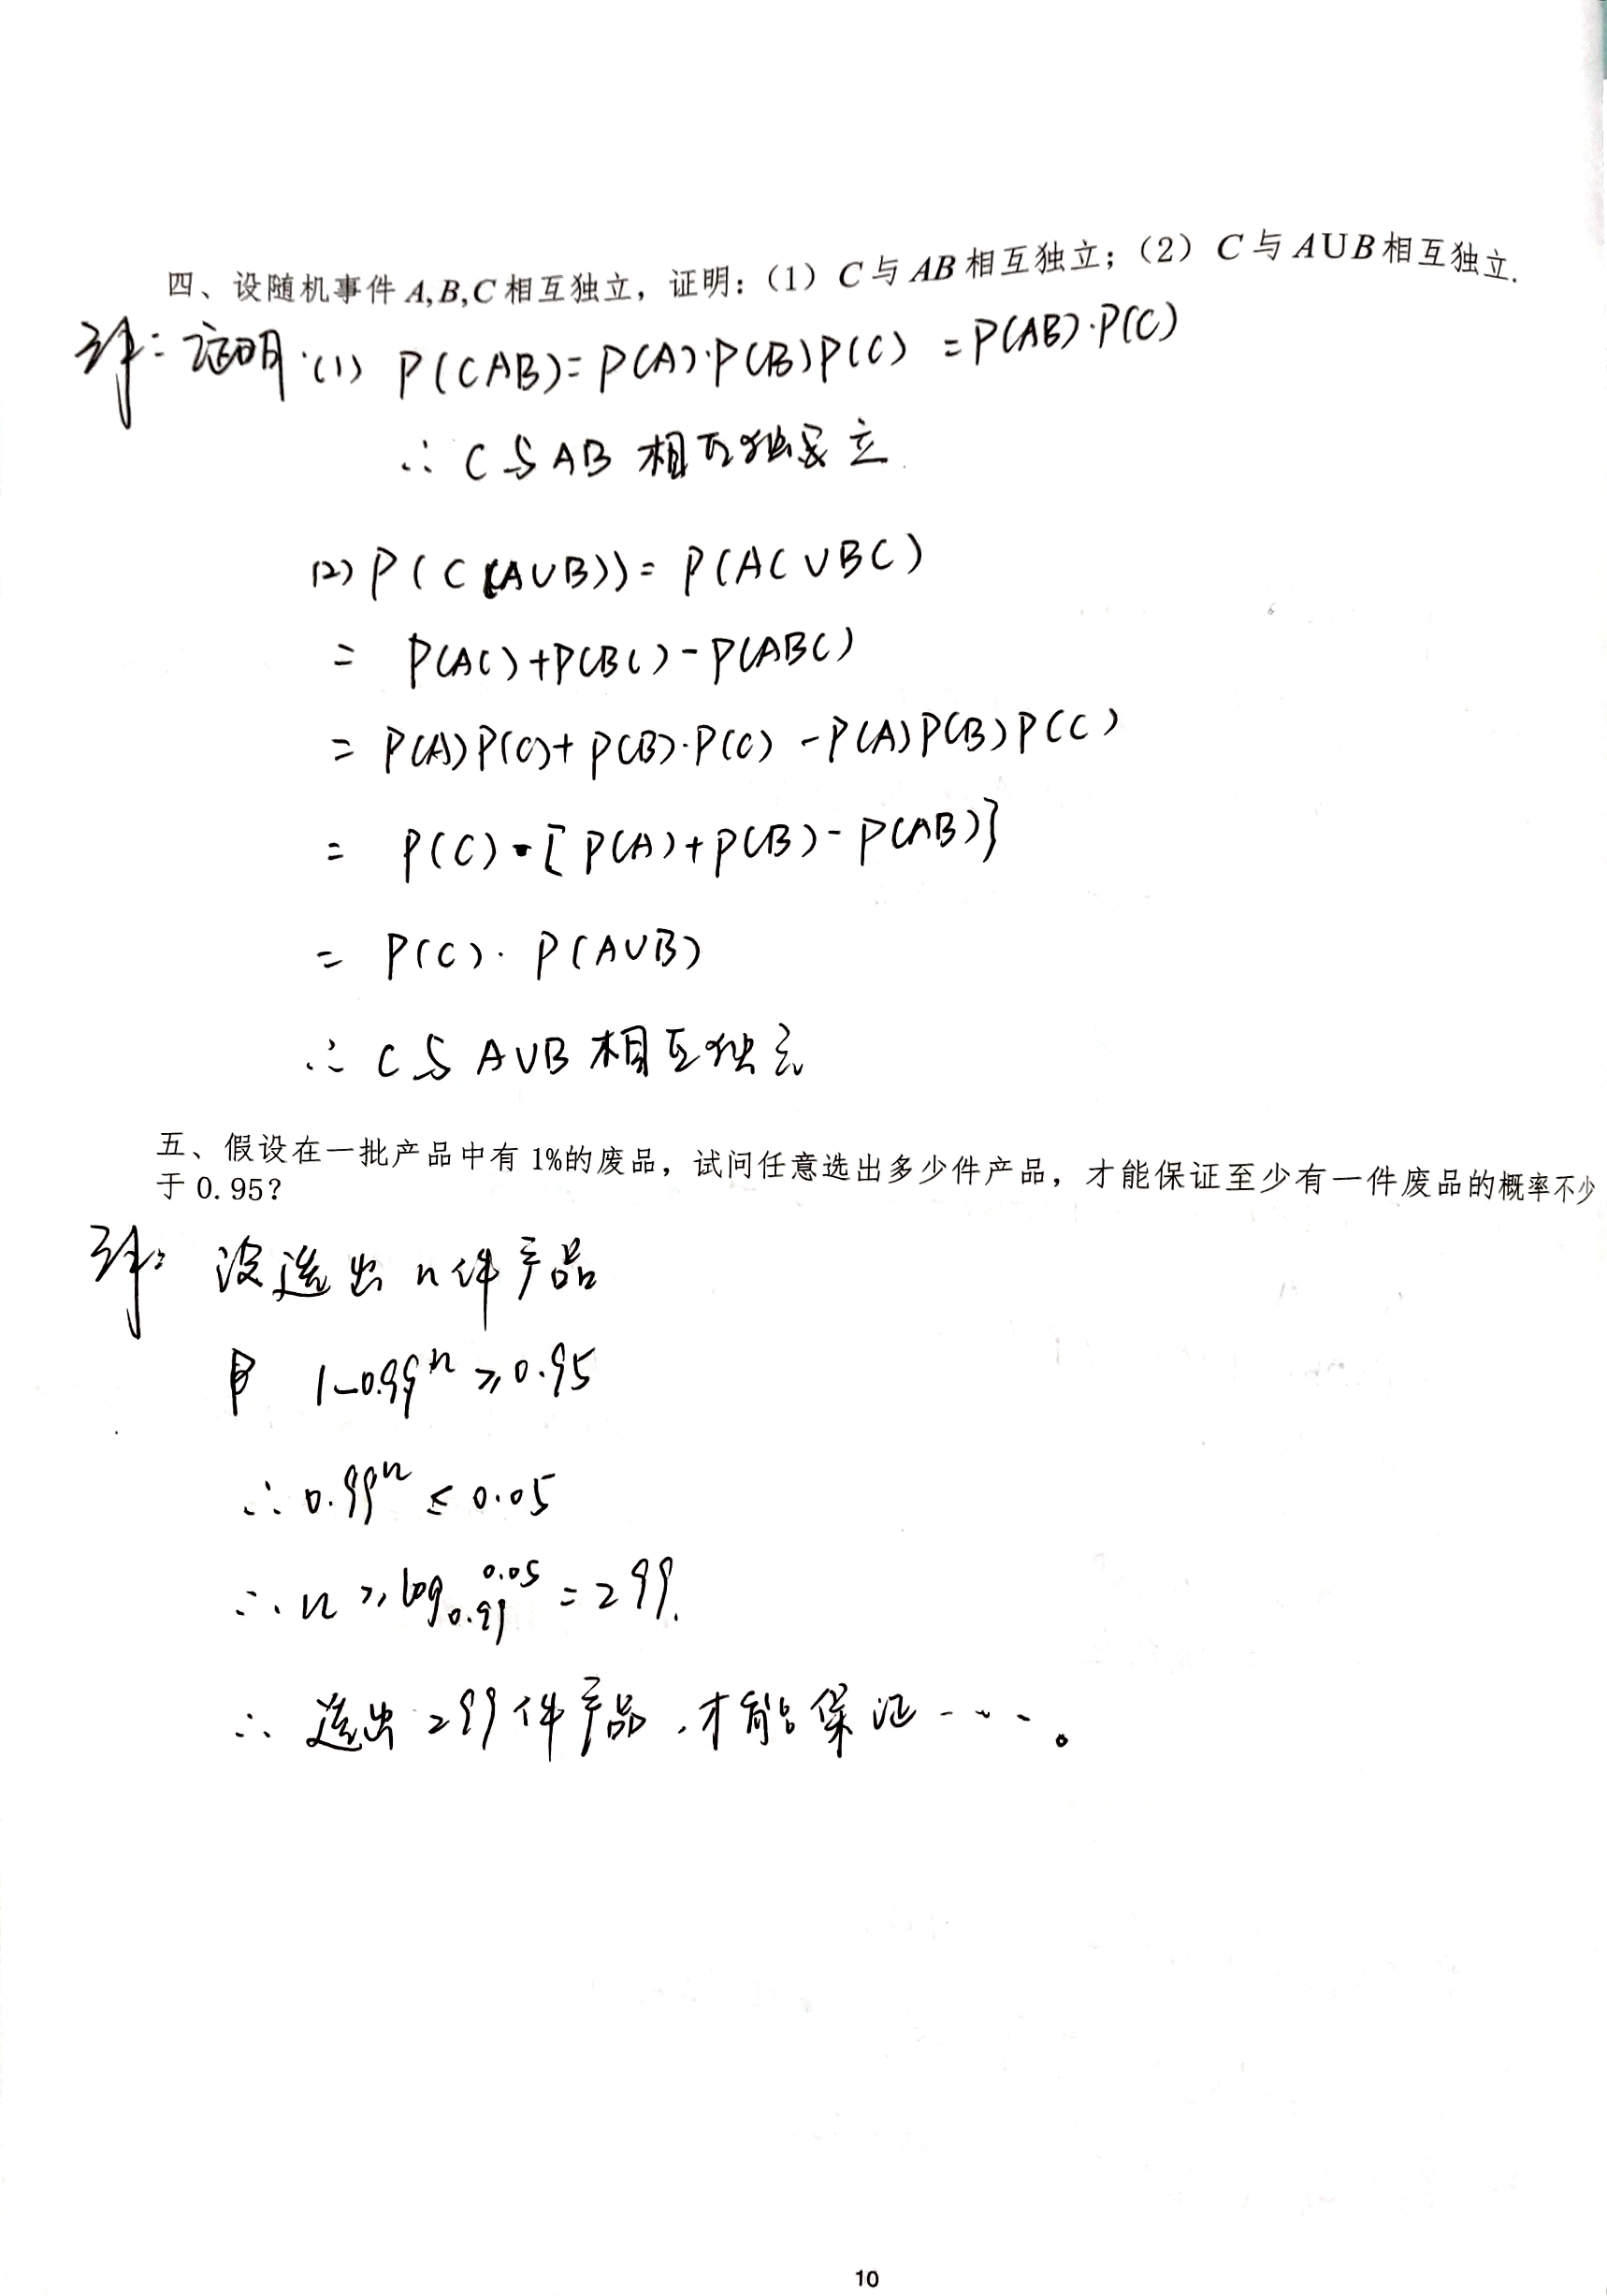 四、设随机事件 A,B,C 相互独立，证明：（1）C 与 AB 相互独立；（2）C 与 A∪B 相互独立.
证明：(1) P(CAB)=P(A)·P(B)P(C) =P(AB)·P(C)
∴ C与AB 相互独立
(2) P(C(A∪B))= P(AC∪BC)
= P(AC)+P(BC)-P(ABC)
= P(A)P(C)+P(B)·P(C) -P(A)P(B)P(C)
= P(C)·[P(A)+P(B)-P(AB)]
= P(C)·P(A∪B)
∴ C与 A∪B 相互独立
五、假设在一批产品中有 1%的废品，试问任意选出多少件产品，才能保证至少有一件废品的概率不少
于 0.95？
解：设选出 n件产品
即 1-0.99ⁿ ≥0.95
∴ 0.99ⁿ ≤ 0.05
∴ n ≥ log₀.₉₉ 0.05 =299.
∴ 选出 299件产品，才能保证……。
10